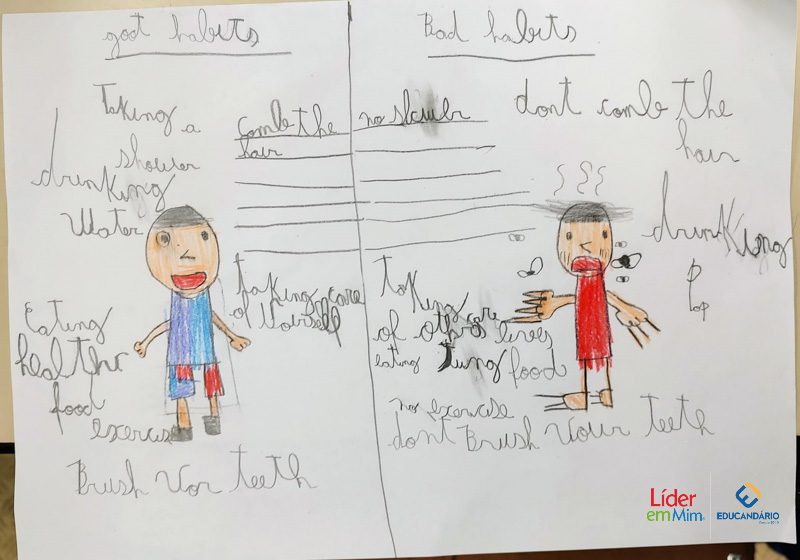 good habits
Taking
a
shower
comb the
hair
drinking
Water
taking care
of Yourself
Eating
healthe
food
exercise
Brush Yor teeth
Bad habits
no
dont comb the
hair
drinking
Pop
Taking care
of othrs lives
eating Jung food
no exercise
dont Brush Your teeth
Líder
emMim
EDUCANDÁRIO